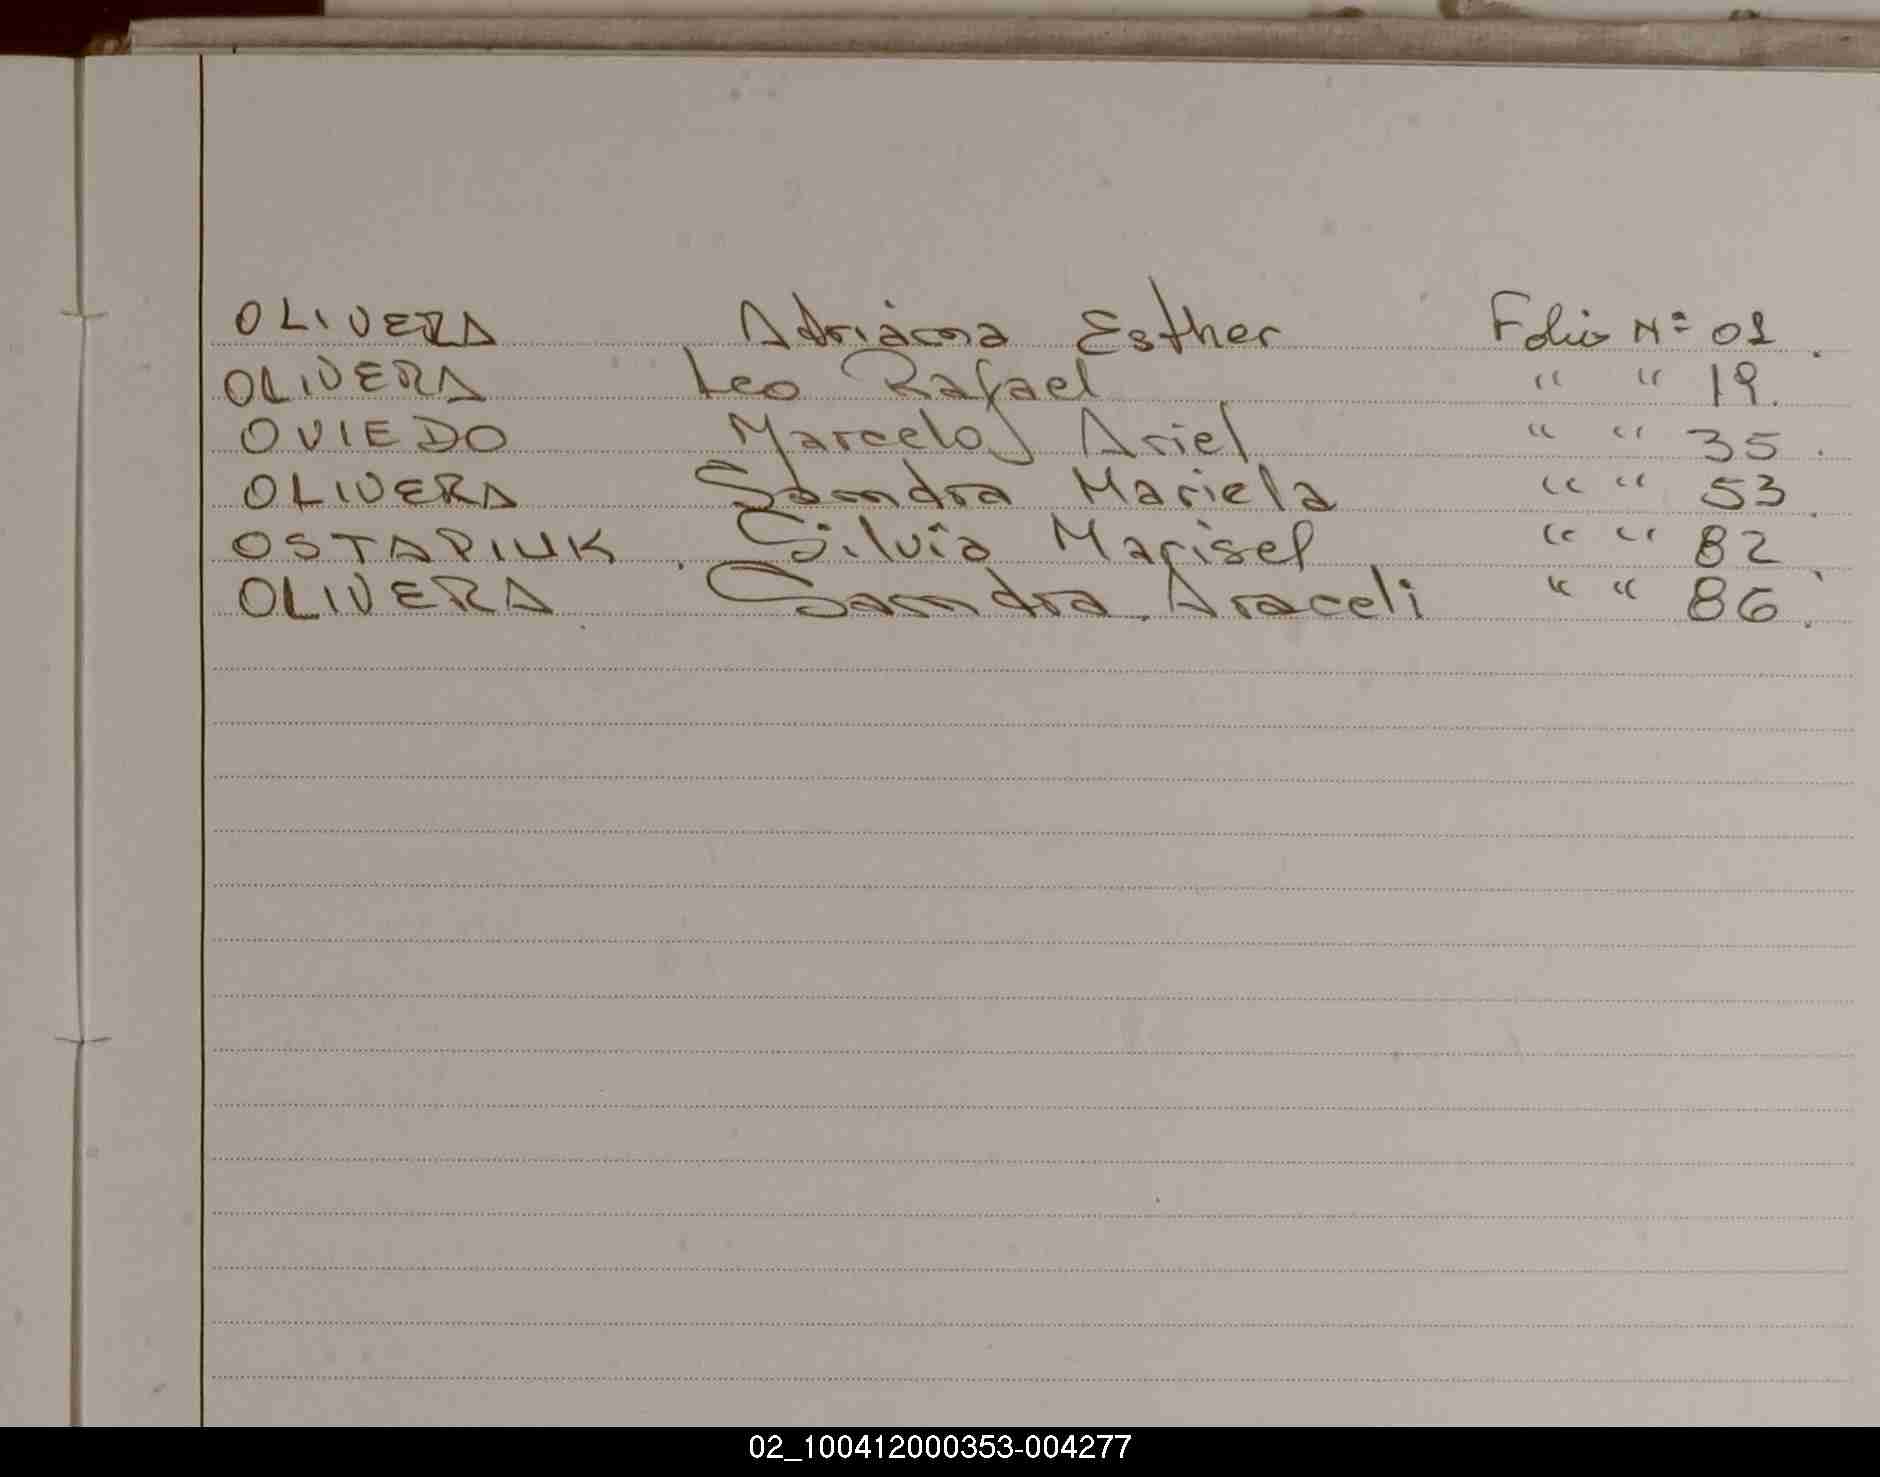 OLIVERA Adriana Esther Folio Nº 01.
OLIVERA Leo Rafael " " 19.
OVIEDO Marcelo Ariel " " 35.
OLIVERA Sandra Mariela " " 53.
OSTAPIUK. Silvia Marisel " " 82.
OLIVERA Sandra Araceli " " 86.
02_100412000353-004277